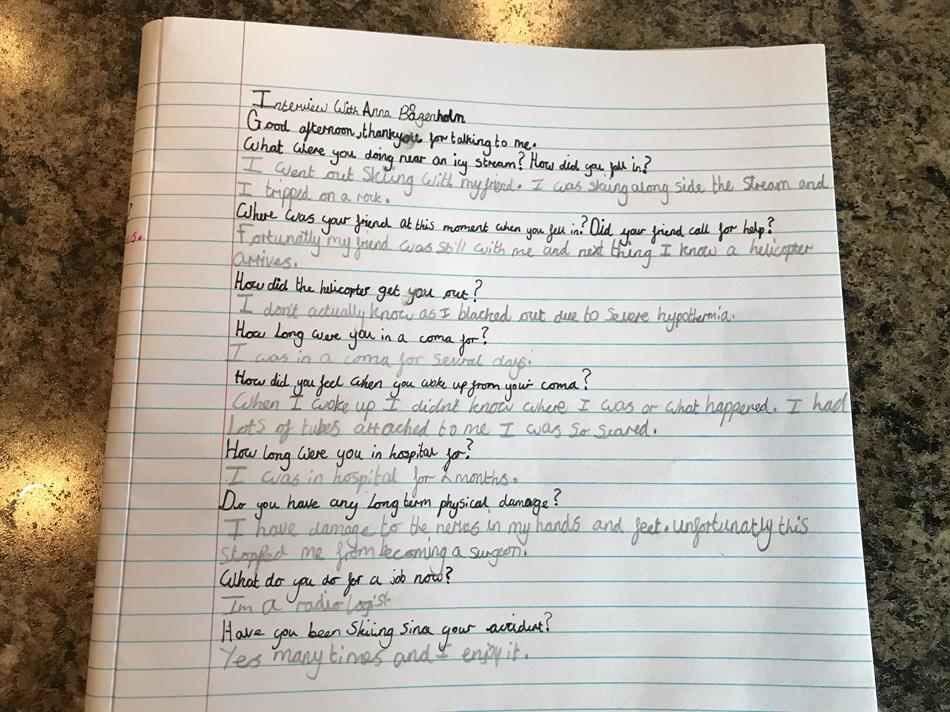 Interview With Anna Bågenholm
Good afternoon, thankyou for talking to me.
What were you doing near an icy stream? How did you fall in?
I went out Skiing with my friend. I was skiing along side the stream and
I tripped on a rock.
Where was your friend at this moment when you fell in? Did your friend call for help?
Fortunatly my friend was still with me and next thing I know a helicopter
arrives.
How did the helicopter get you out?
I don't actually know as I blacked out due to severe hypothermia.
How long were you in a coma for?
I was in a coma for several days.
How did you feel when you woke up from your coma?
When I woke up I didn't know where I was or what happened. I had
Lots of tubes attached to me I was so scared.
How long were you in hospital for?
I was in hospital for 2 months.
Do you have any long term physical damage?
I have damage to the nerves in my hands and feet. unfortunatly this
stopped me from becoming a surgeon.
What do you do for a job now?
Im a radiologist
Have you been Skiing since your accident?
Yes many times and I enjoy it.